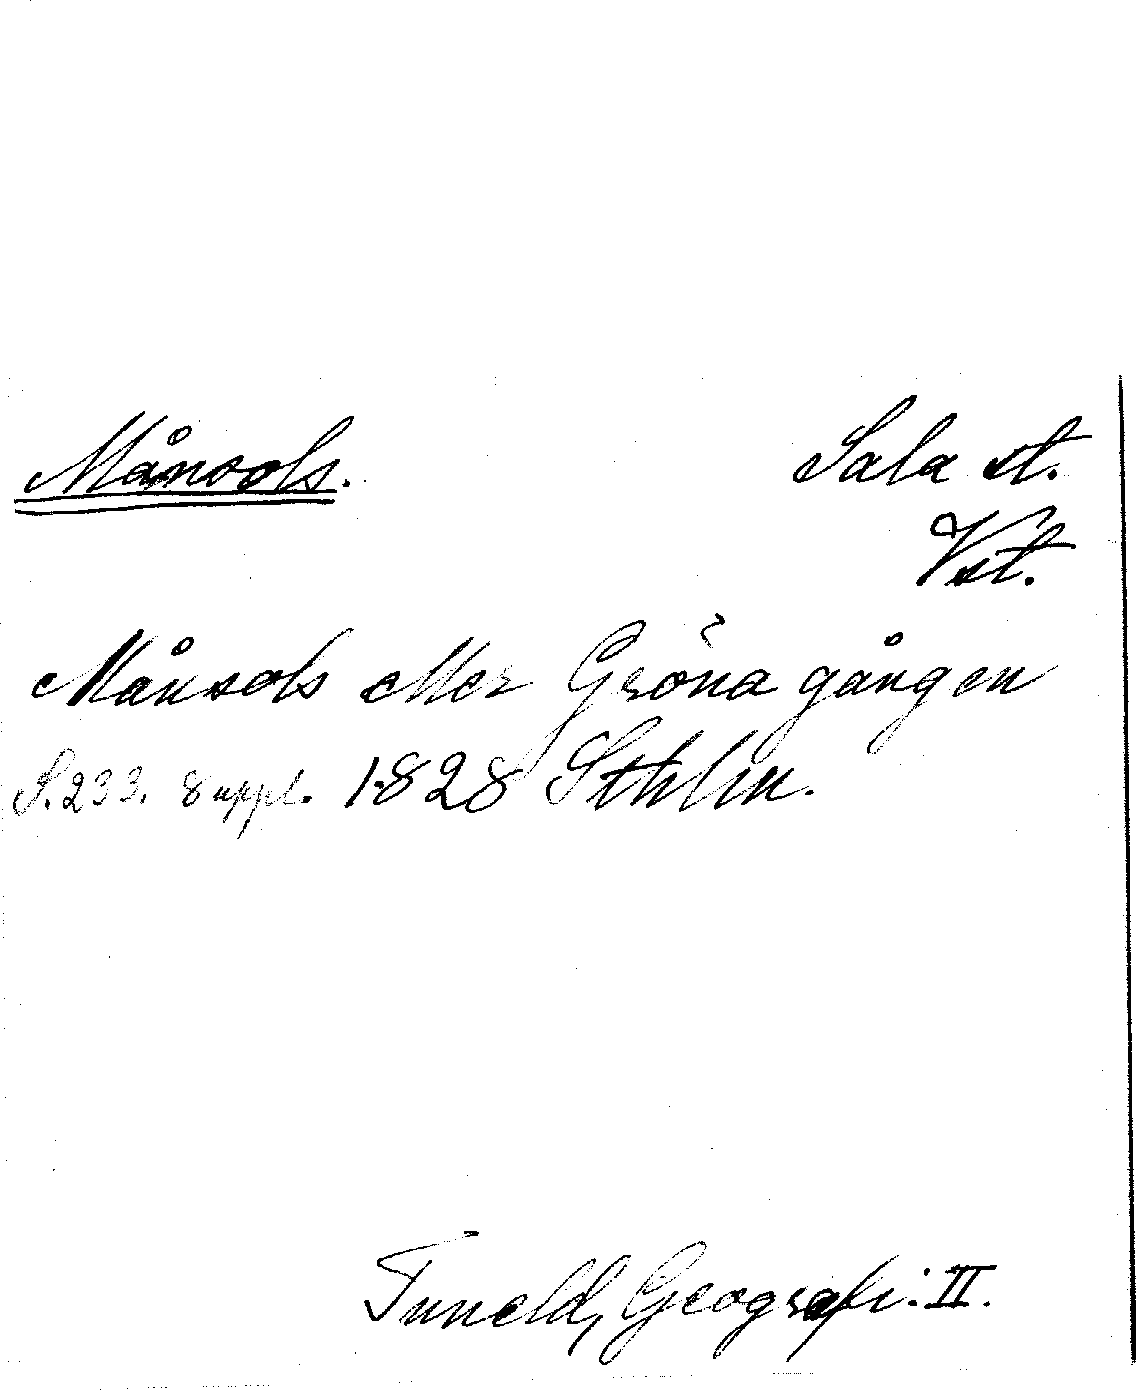 Månsols.
Sala st.
Vst.
Månsols eller Gröna gången
S. 233. 8 uppl. 1828 Sthlm.
Tuneld, Geografi. II.